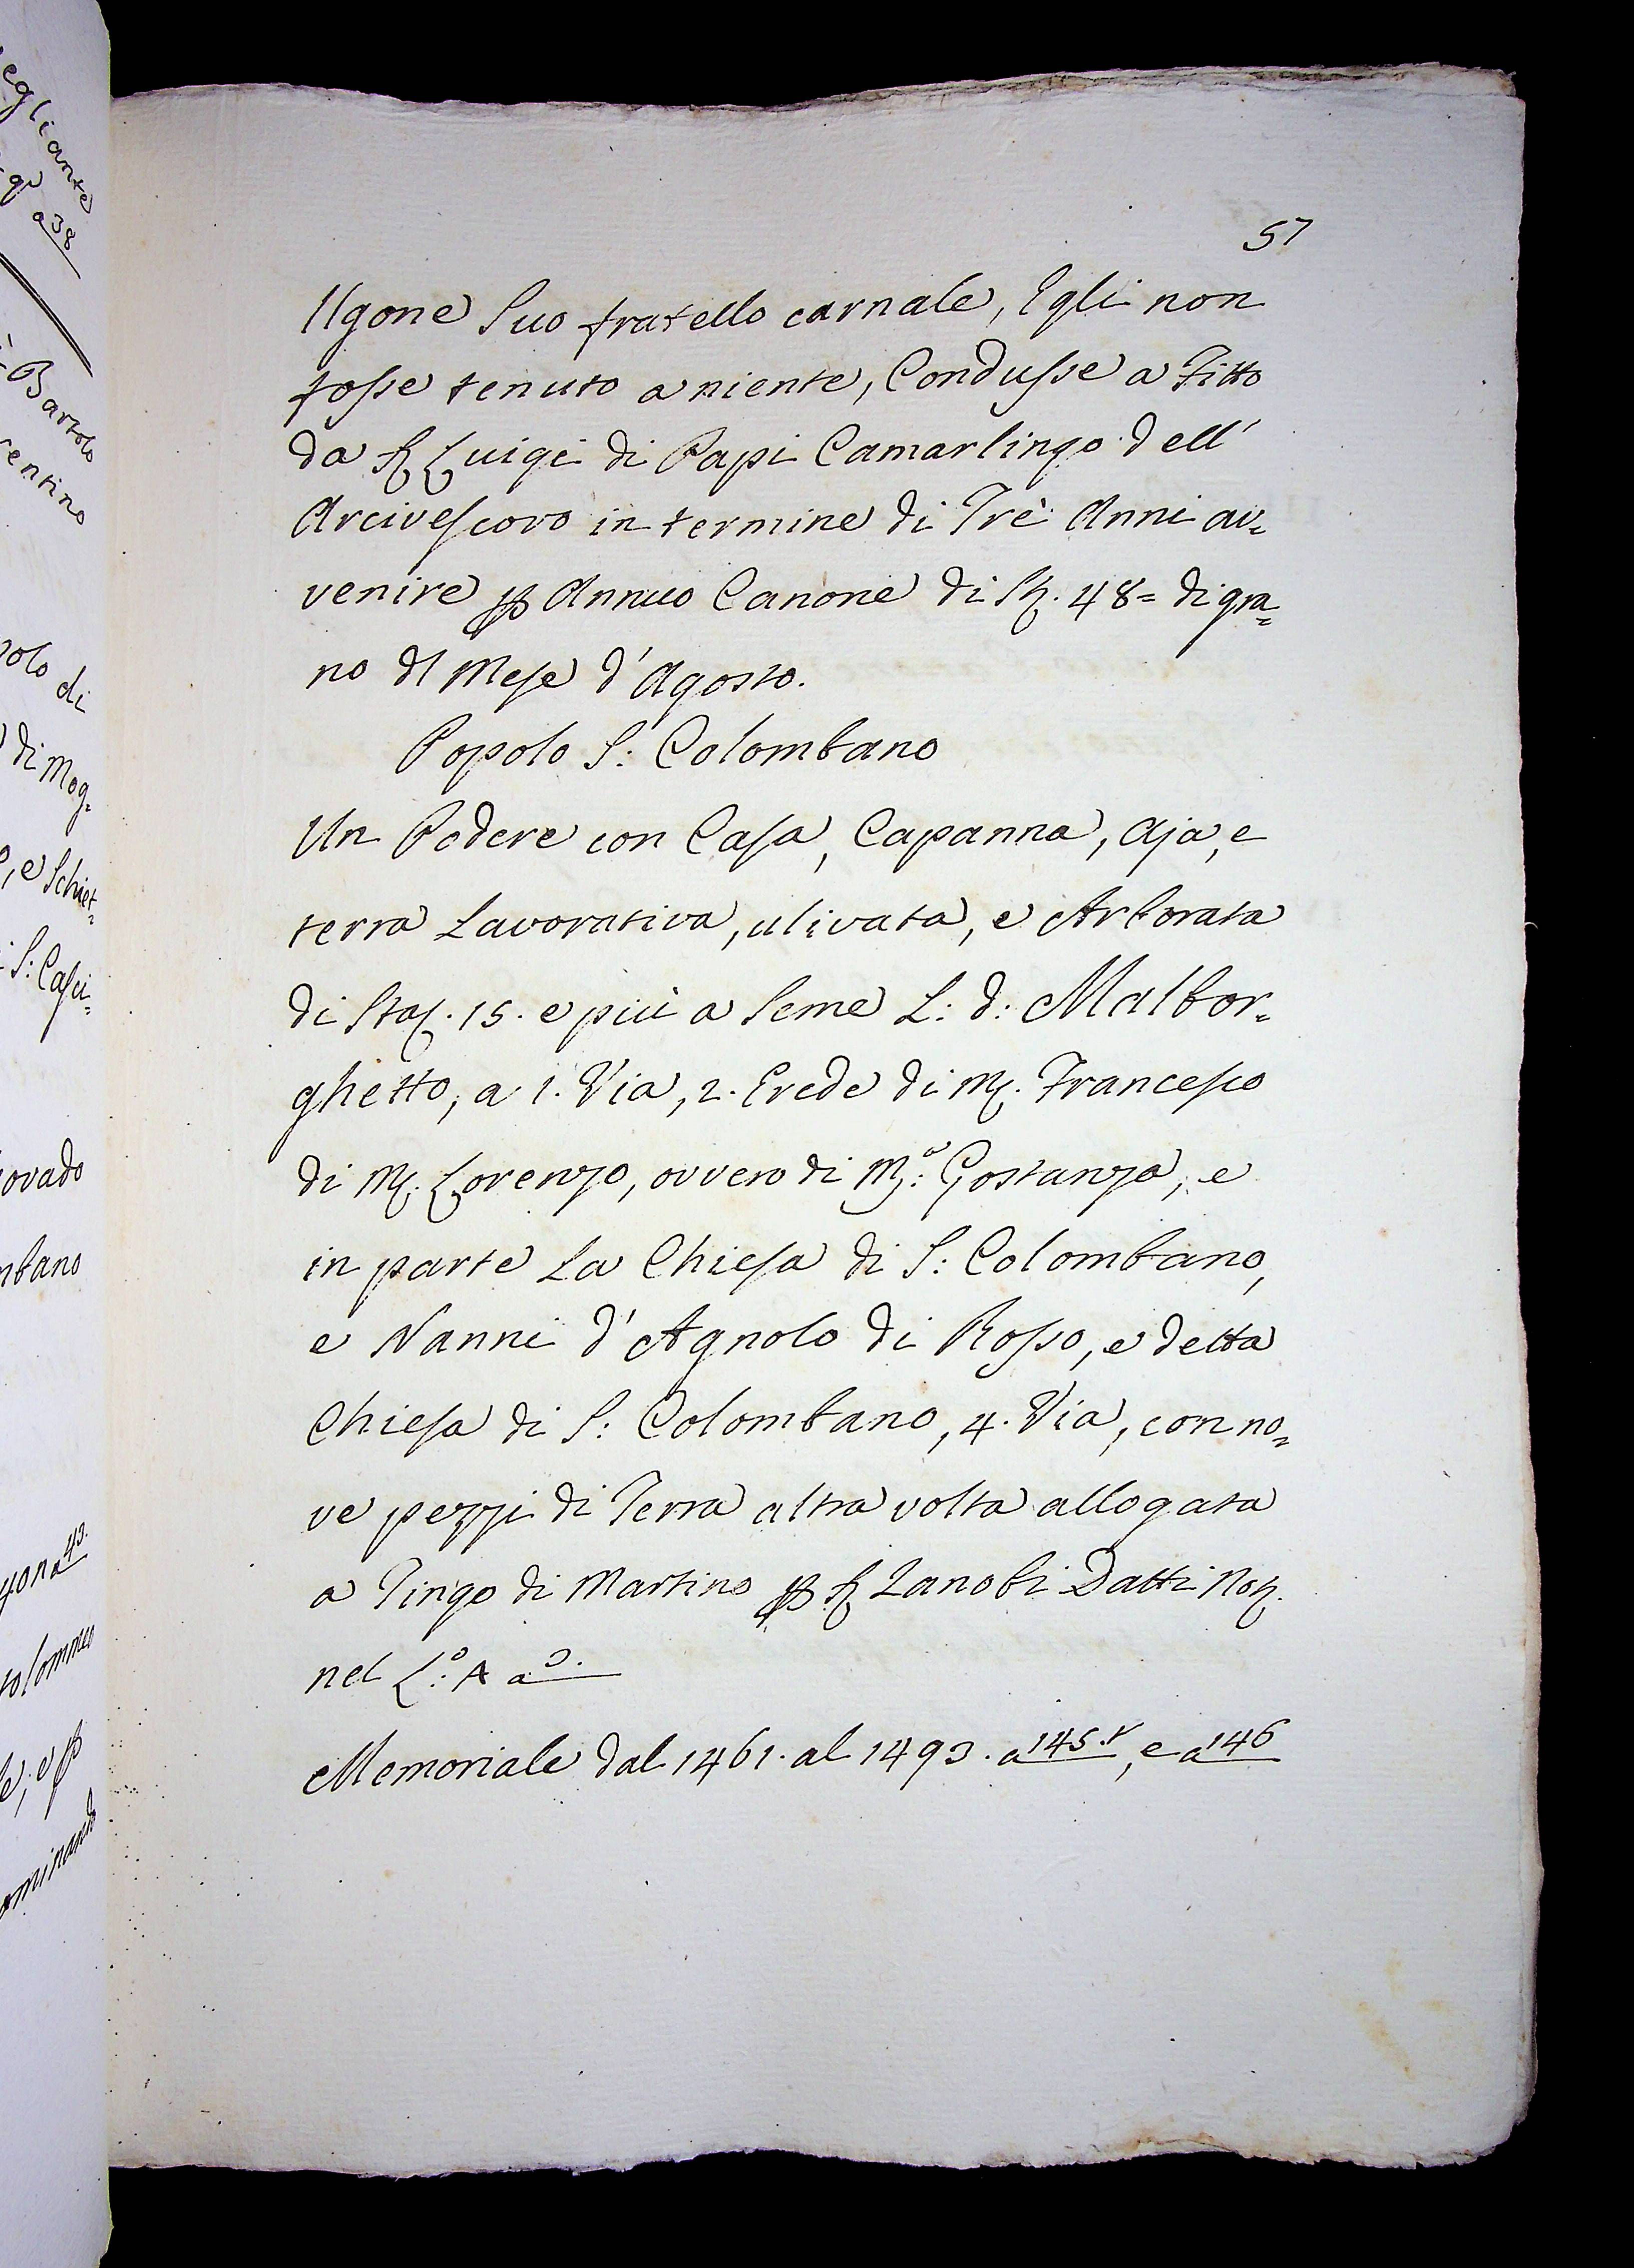 57
Ugone Suo fratello carnale, Egli non
fosse tenuto a niente, Condusse a Fitto
da S. Luigi di Papi Camarlingo dell'
Arcivescovo in termine di Trè Anni av=
venire p Annuo Canone di St. 48= di gra=
no dl Mese d'Agosto.
Popolo S: Colombano
Un Podere con Casa, Capanna, Aja, e
terra Lavorativa, ulivata, e Arborata
di Staj. 15. e più a Seme L: d: Malbor=
ghetto, a 1. Via, 2. Erede di M. Francesco
di M. Lorenzo, ovvero di M.a: Gostanza, e
in parte La Chiesa di S: Colombano,
e Nanni d'Agnolo di Rosso, e detta
Chiesa di S: Colombano, 4. Via, con no=
ve pezzi di Terra altra volta allogata
a Pingo di Martino p S. Zanobi Datti Not.
nel L:o A a 3.
Memoriale dal 1461. al 1493. a 145.t, e a 146